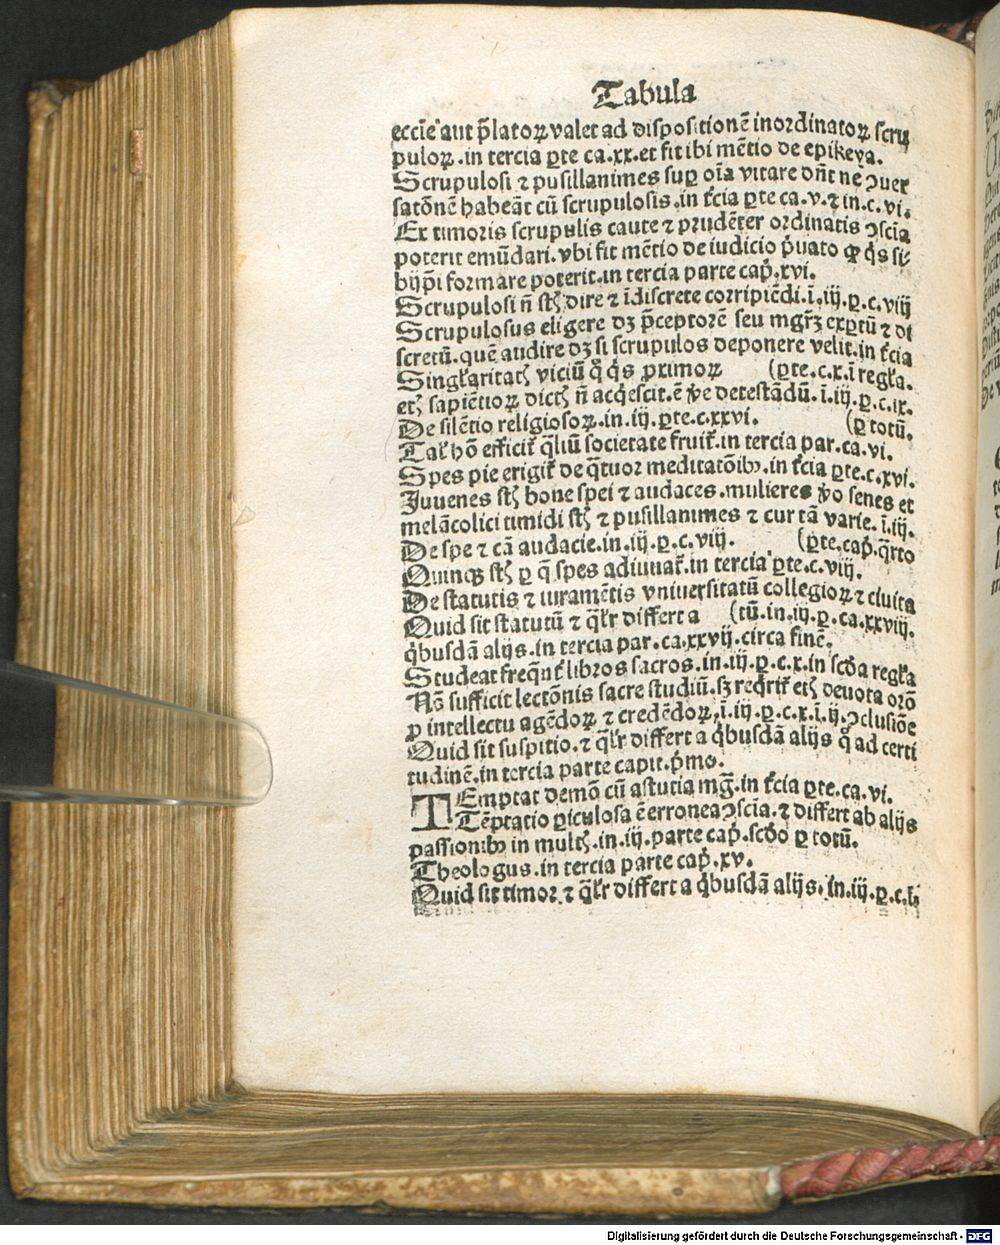 Tabula
eccĩe aut p̃latoꝝ valet ad dispositionẽ inordinatoꝝ scru
puloꝝ.in tercia ꝑte ca.xx.et fit ibi mẽtio de epikeya.
Scrupulosi ⁊ pusillanimes suꝑ oĩa vitare dñt ne ꝯuer
satõnẽ habeãt cũ scrupulosis.in t̃cia ꝑte ca.v.⁊ in.c.vi.
Ex timoris scrupulis caute ⁊ prudẽter ordinatis ꝯscia
poterit emũdari.vbi fit mẽtio de iudicio p̃uato qđ q̃s si-
bijp̃i formare poterit.in tercia parte cap̃.xvi.
Scrupulosi ñ st̃ dire ⁊ ĩdiscrete corripiẽdi.ĩ.iij.ꝑ.c.viij
Scrupulosus eligere dꝫ p̃ceptorẽ seu mgr̃ꝫ exꝑtũ ⁊ di
scretũ.quẽ audire dꝫ si scrupulos deponere velit.in t̃cia
Singl̃aritatꝭ viciũ q̃ q̃s primoꝝ (ꝑte.c.x.ĩ regl̃a.
etꝭ sapiẽtioꝝ dictꝭ ñ acq̃escit.ẽ ṽe detestãdũ.ĩ.iij.ꝑ.c.ix.
De silẽtio religiosoꝝ.in.iij.ꝑte.c.xxvi. (ꝑ totũ.
Tal̃ hõ efficit̃ q̃liũ societate fruit̃.in tercia par.ca.vi.
Spes pie erigit̃ de q̃tuor meditatõibꝫ.in t̃cia ꝑte.c.xvi.
Juuenes st̃ bone spei ⁊ audaces.mulieres ṽo senes et
melãcolici timidi st̃ ⁊ pusillanimes ⁊ cur tã varie.ĩ.iij.
De spe ⁊ cã audacie.in.iij.ꝑ.c.viij. (ꝑte.cap̃.q̃rto
Quinqꝫ st̃ ꝑ q̃ spes adiuuat̃.in tercia ꝑte.c.viij.
De statutis ⁊ iuramẽtis vniuersitatũ collegioꝝ ⁊ ciuita
Quid sit statutũ ⁊ q̃lr̃ differt a (tũ.in.iij.ꝑ.ca.xxviij.
q̃busdã alijs.in tercia par.ca.xxvij.circa finẽ.
Studeat freq̃nt̃ libros sacros.in.iij.ꝑ.c.x.in scđa regl̃a
Nõ sufficit lectõnis sacre studiũ.sꝫ reqr̃it̃ etꝭ deuota orõ
ꝑ intellectu agẽdoꝝ ⁊ credẽdoꝝ,ĩ.iij.ꝑ.c.x.ĩ.ij.ꝯclusiõe
Quid sit suspitio.⁊ q̃lr̃ differt a q̃busdã alijs q̃ ad certi
tudinẽ.in tercia parte capit.p̃mo.
TEmptat demõ cũ astutia mg̃.in t̃cia ꝑte.ca.vi.
Tẽptatio ꝑiculosa ẽ erronea ꝯscĩa.⁊ differt ab alijs
passionibꝫ in multꝭ.in.iij.parte cap̃.scđo ꝑ totũ.
Theologus.in tercia parte cap̃.xv.
Quid sit timor ⁊ q̃lr̃ differt a q̃busdã alijs.in.iij.ꝑ.c.
Digitalisierung gefördert durch die Deutsche Forschungsgemeinschaft - DFG